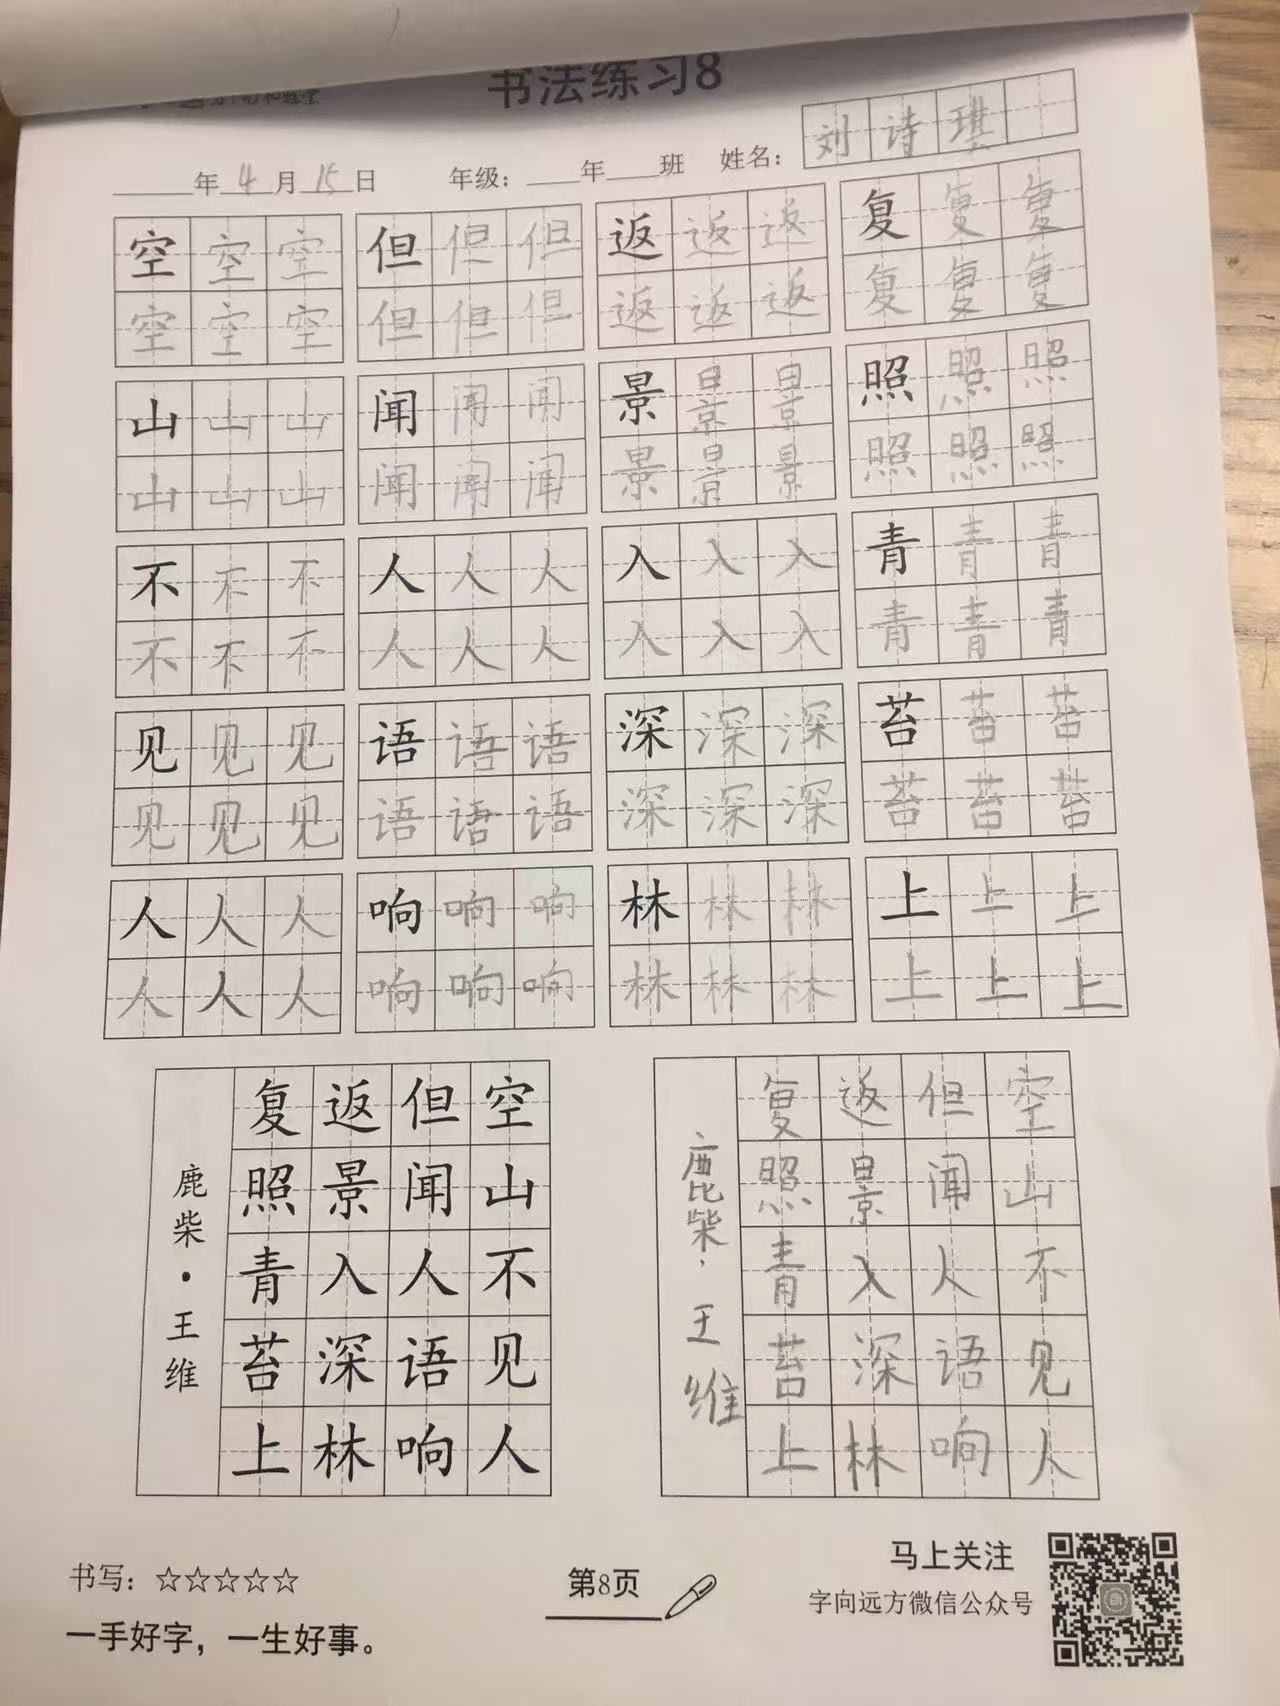 书法练习8
年4月15日 年级：年班 姓名：刘诗琪
空空空 但但但 返返返 复复复
空空空 但但但 返返返 复复复
山山山 闻闻闻 景景景 照照照
山山山 闻闻闻 景景景 照照照
不不不 人人人 入入入 青青青
不不不 人人人 入入入 青青青
见见见 语语语 深深深 苔苔苔
见见见 语语语 深深深 苔苔苔
人人人 响响响 林林林 上上上
人人人 响响响 林林林 上上上
空山不见人
但闻人语响
返景入深林
复照青苔上
鹿柴·王维
空山不见人
但闻人语响
返景入深林
复照青苔上
鹿柴·王维
书写：☆☆☆☆☆
一手好字，一生好事。
第8页
马上关注
字向远方微信公众号